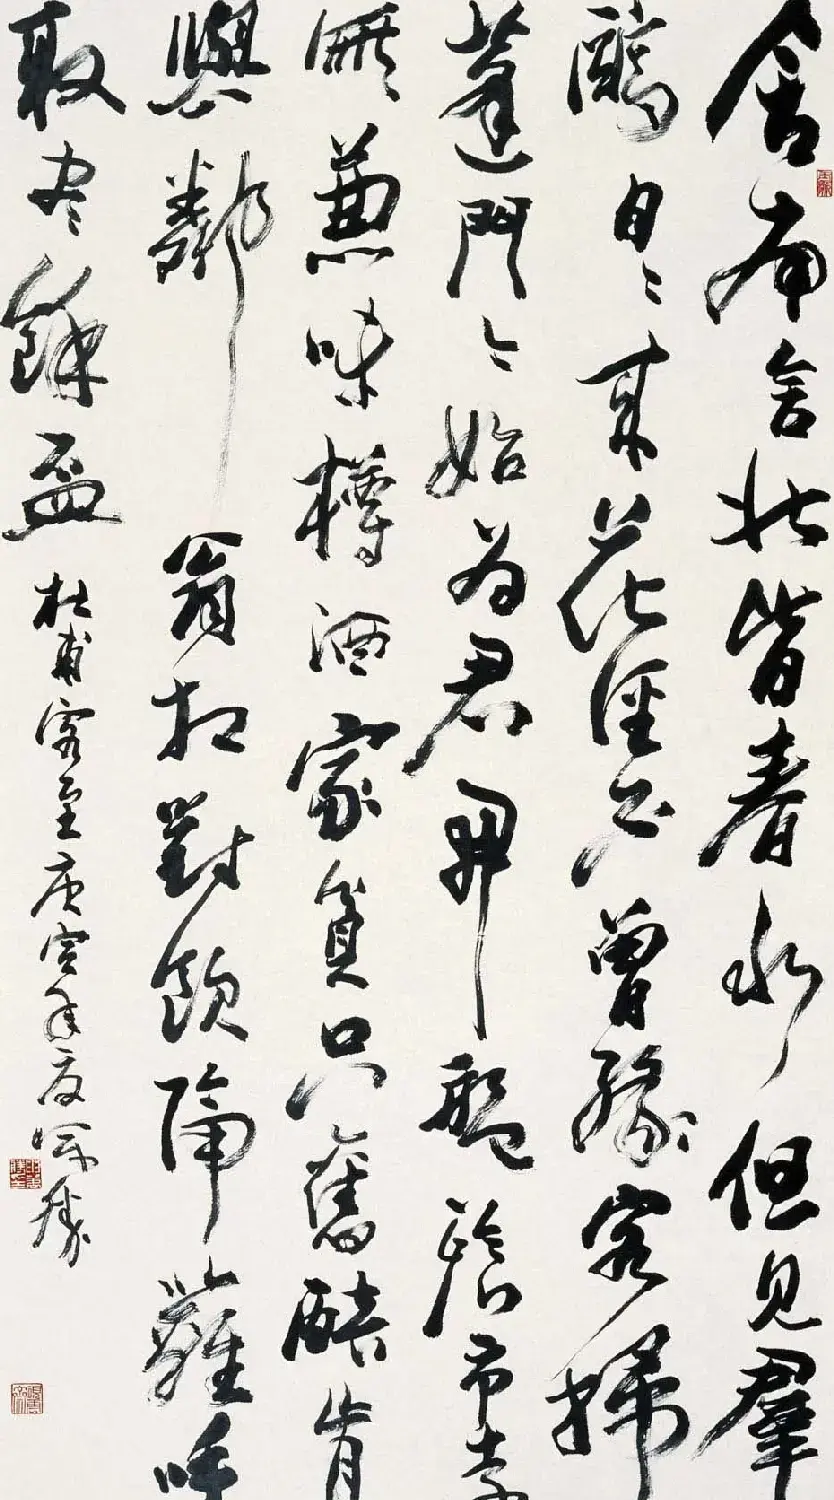 舍南舍北皆春水但見羣
鷗日〻來花徑不曾緣客掃
蓬門今始為君開盤飧市遠
無兼味樽酒家貧只舊醅肯
與鄰翁相對飲隔籬呼
取盡餘盃
杜甫客至庚寅年夏